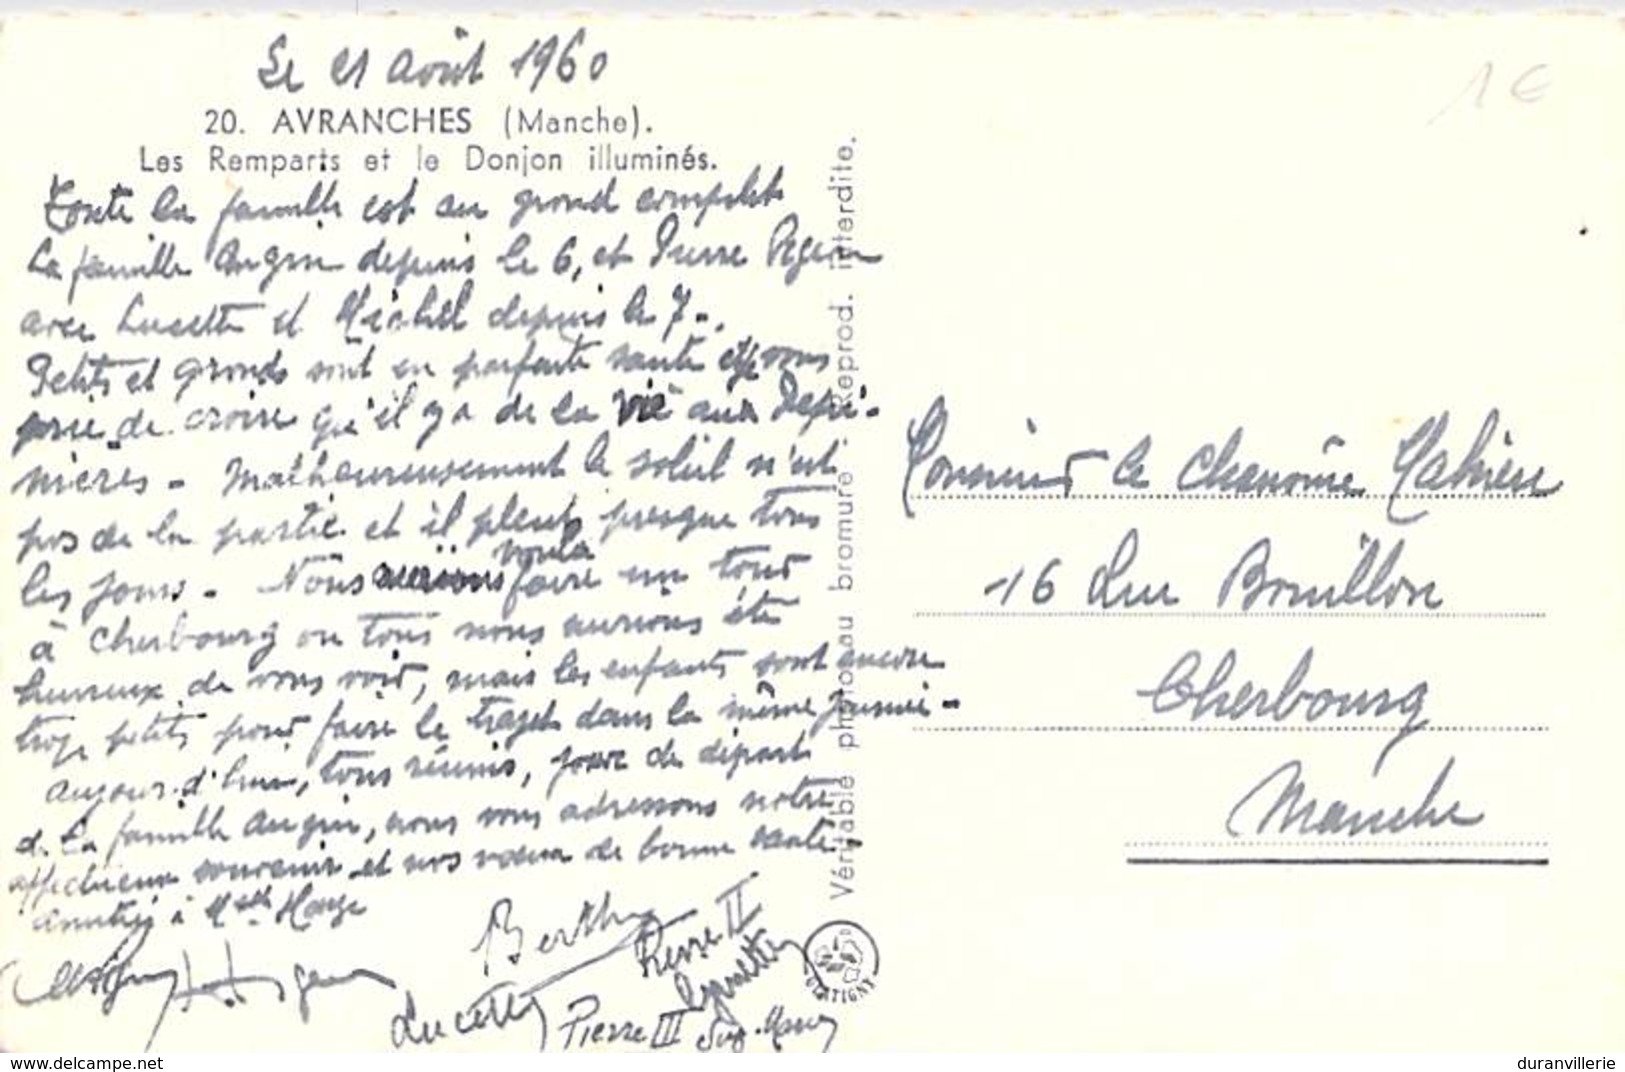 Le 21 Août 1960
20. AVRANCHES (Manche).
Les Remparts et le Donjon illuminés.
Toute la famille est au grand complet
La famille Angin depuis le 6, et Pierre
avec Lucette et Michel depuis le 7.
Petits et grands sont en parfaite santé et je vous
prie de croire qu'il y a de la vie aux Pépi-
nières - Malheureusement le soleil n'est
pas de la partie et il pleut presque tous
les jours. - Nous aurions voulu faire un tour
à Cherbourg où tous nous aurions été
heureux de vous voir, mais les enfants sont encore
trop petits pour faire le trajet dans la même journée -
Aujourd'hui, tous réunis, jour de départ
de la famille Angin, nous vous adressons notre
affectueux souvenir et nos vœux de bonne santé.
Amitiés à Melle
Berthe
Pierre II
Lucette
Pierre III
Véritable photo au bromure. Reprod. interdite.
GLATIGNY
1 €
Monsieur le Chanoine Mahieu
16 Rue Bouillon
Cherbourg
Manche
www.delcampe.net
duranvillerie